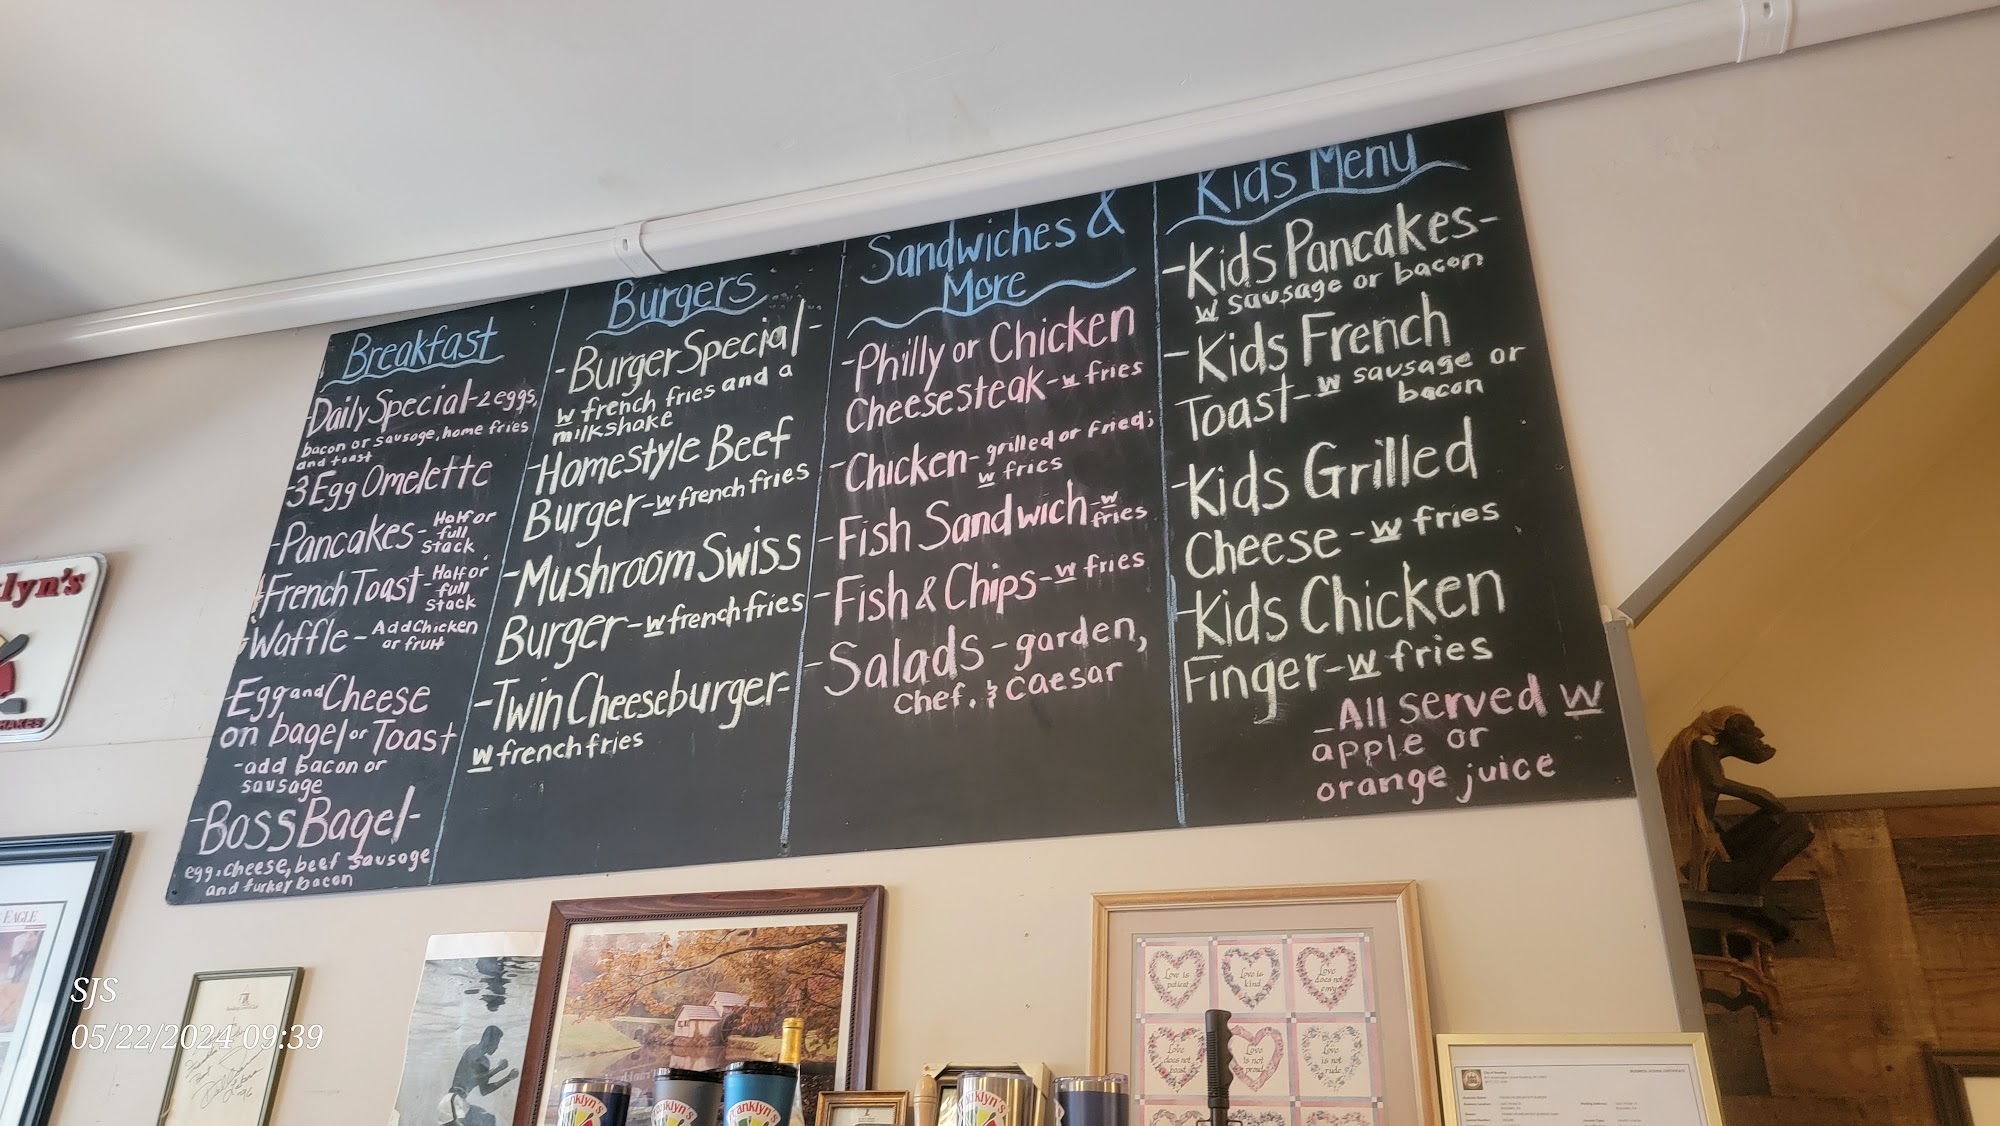 Breakfast
Daily Special-2 eggs,
bacon or sausage, home fries
and toast
-3 Egg Omelette
-Pancakes-Half or
full
Stack
French Toast-Half or
full
Stack
Waffle-Add Chicken
or fruit
-Egg and Cheese
on bagel or Toast
-add bacon or
sausage
-Boss Bagel-
egg, cheese, beef sausage
and turkey bacon
Burgers
-Burger Special-
w french fries and a
milkshake
-Homestyle Beef
Burger-w french fries
-Mushroom Swiss
Burger-w french fries
-Twin Cheeseburger-
w french fries
Sandwiches &
More
-Philly or Chicken
Cheesesteak-w fries
-Chicken-grilled or fried;
w fries
-Fish Sandwich-w
fries
-Fish & Chips-w fries
-Salads-garden,
chef, & caesar
Kids Menu
-Kids Pancakes-
w sausage or bacon
-Kids French
Toast-w sausage or
bacon
-Kids Grilled
Cheese-w fries
-Kids Chicken
Finger-w fries
-All served w
apple or
orange juice
lyn's
HAKES
EAGLE
SJS
05/22/2024 09:39
Love is
patient
Love is
kind
Love
does not
envy
Love
does not
boast
Love
is not
proud
Love
is not
rude
anklyn's
anklyn's
ranklyn's
anklyn's
City of Reading